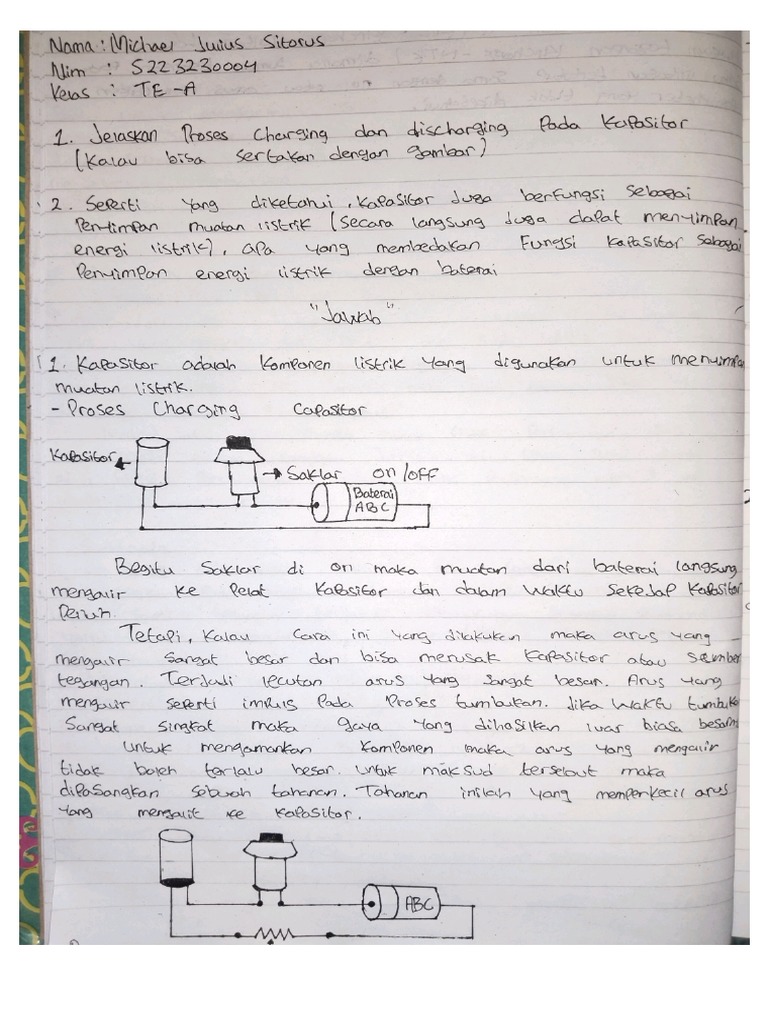 Nama : Michael Juius Sitorus
Nim : 5223230004
Kelas : TE-A
1. Jelaskan Proses Charging dan discharging Pada Kapasitor
(Kalau bisa sertakan dengan gambar)
2. Seperti yang diketahui, Kapasitor Juga berfungsi Sebagai
Penyimpan muatan listrik (Secara langsung Juga dapat menyimpan
energi listrik), apa yang membedakan Fungsi Kapasitor Sebagai
Penyimpan energi listrik dengan baterai
"Jawab"
1. Kapasitor adalah Komponen listrik yang digunakan untuk menyimpan
muatan listrik.
- Proses Charging Capasitor
Kapasitor
Saklar on/off
Baterai
ABC
Begitu Saklar di on maka muatan dari baterai langsung
mengalir ke Pelat Kapasitor dan dalam waktu sekejap Kapasitor
Penuh.
Tetapi, Kalau Cara ini yang dilakukan maka arus yang
mengalir Sangat besar dan bisa merusak Kapasitor atau sumber
tegangan. Terjadi lecutan arus yang sangat besar. Arus yang
mengalir seperti impuls Pada Proses tumbukan. Jika waktu tumbukan
Sangat singkat maka gaya yang dihasilkan luar biasa besarnya
untuk mengamankan Komponen maka arus yang mengalir
tidak boleh terlalu besar. untuk maksud tersebut maka
dipasangkan sebuah tahanan. Tahanan inilah yang memperkecil arus
yang mengalir ke Kapasitor.
ABC